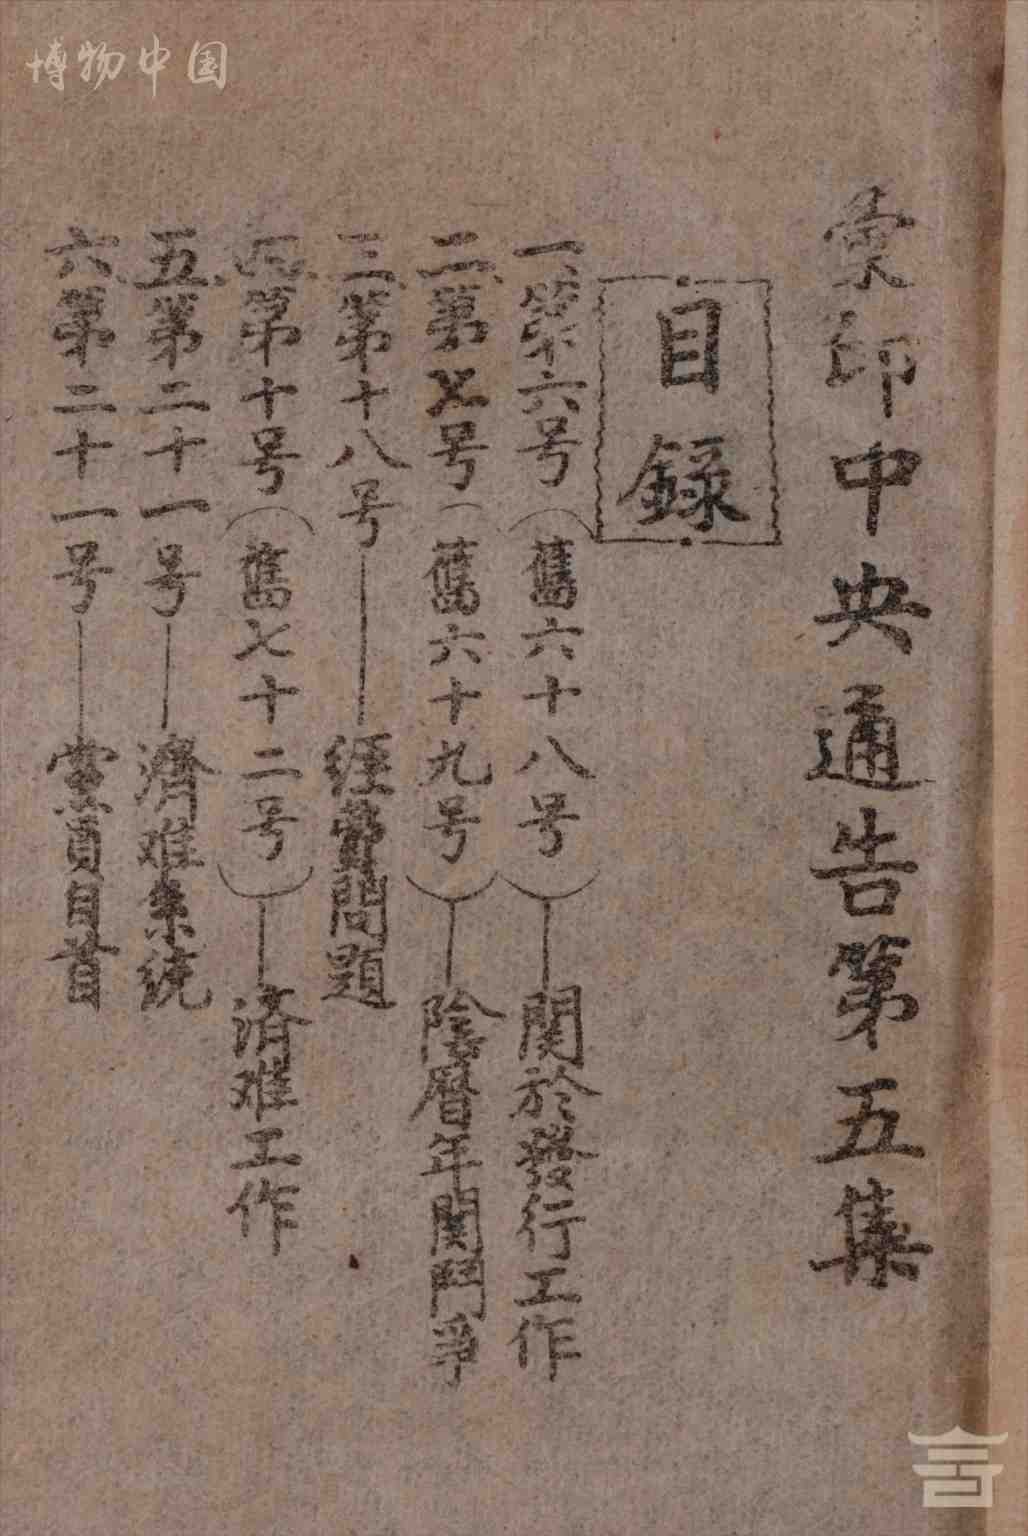 博物中国
彙印中央通告第五集
目錄
一、第六号（舊六十八号）——関於發行工作
二、第七号（舊六十九号）——陰暦年関鬥爭
三、第十八号——經費問題
四、第十号（舊七十二号）——済难工作
五、第二十一号——濟难系統
六、第二十一号——党員自首